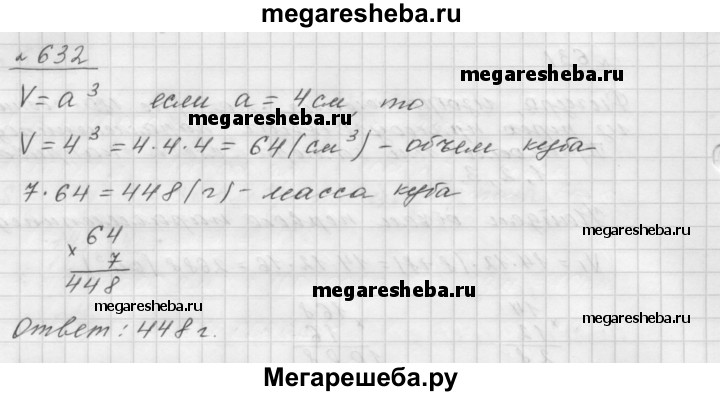 megaresheba.ru
№ 632
megaresheba.ru
V = a³ если a = 4 см, то
megaresheba.ru
V = 4³ = 4·4·4 = 64 (см³) - объем куба
7·64 = 448 (г) - масса куба
64
× 7
448
megaresheba.ru megaresheba.ru megaresheba.ru
Ответ: 448 г.
Мегарешеба.ру